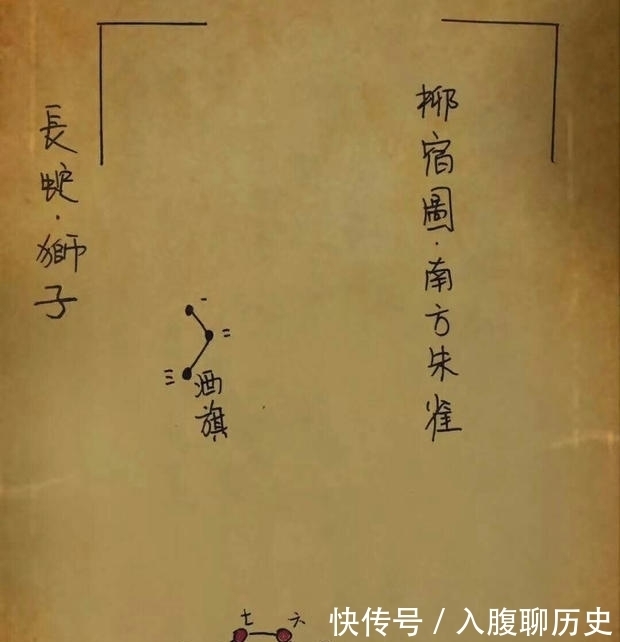 柳宿圖·南方朱雀
長蛇·獅子
一
二
三
酒旗
七 六
快传号 / 入腹聊历史